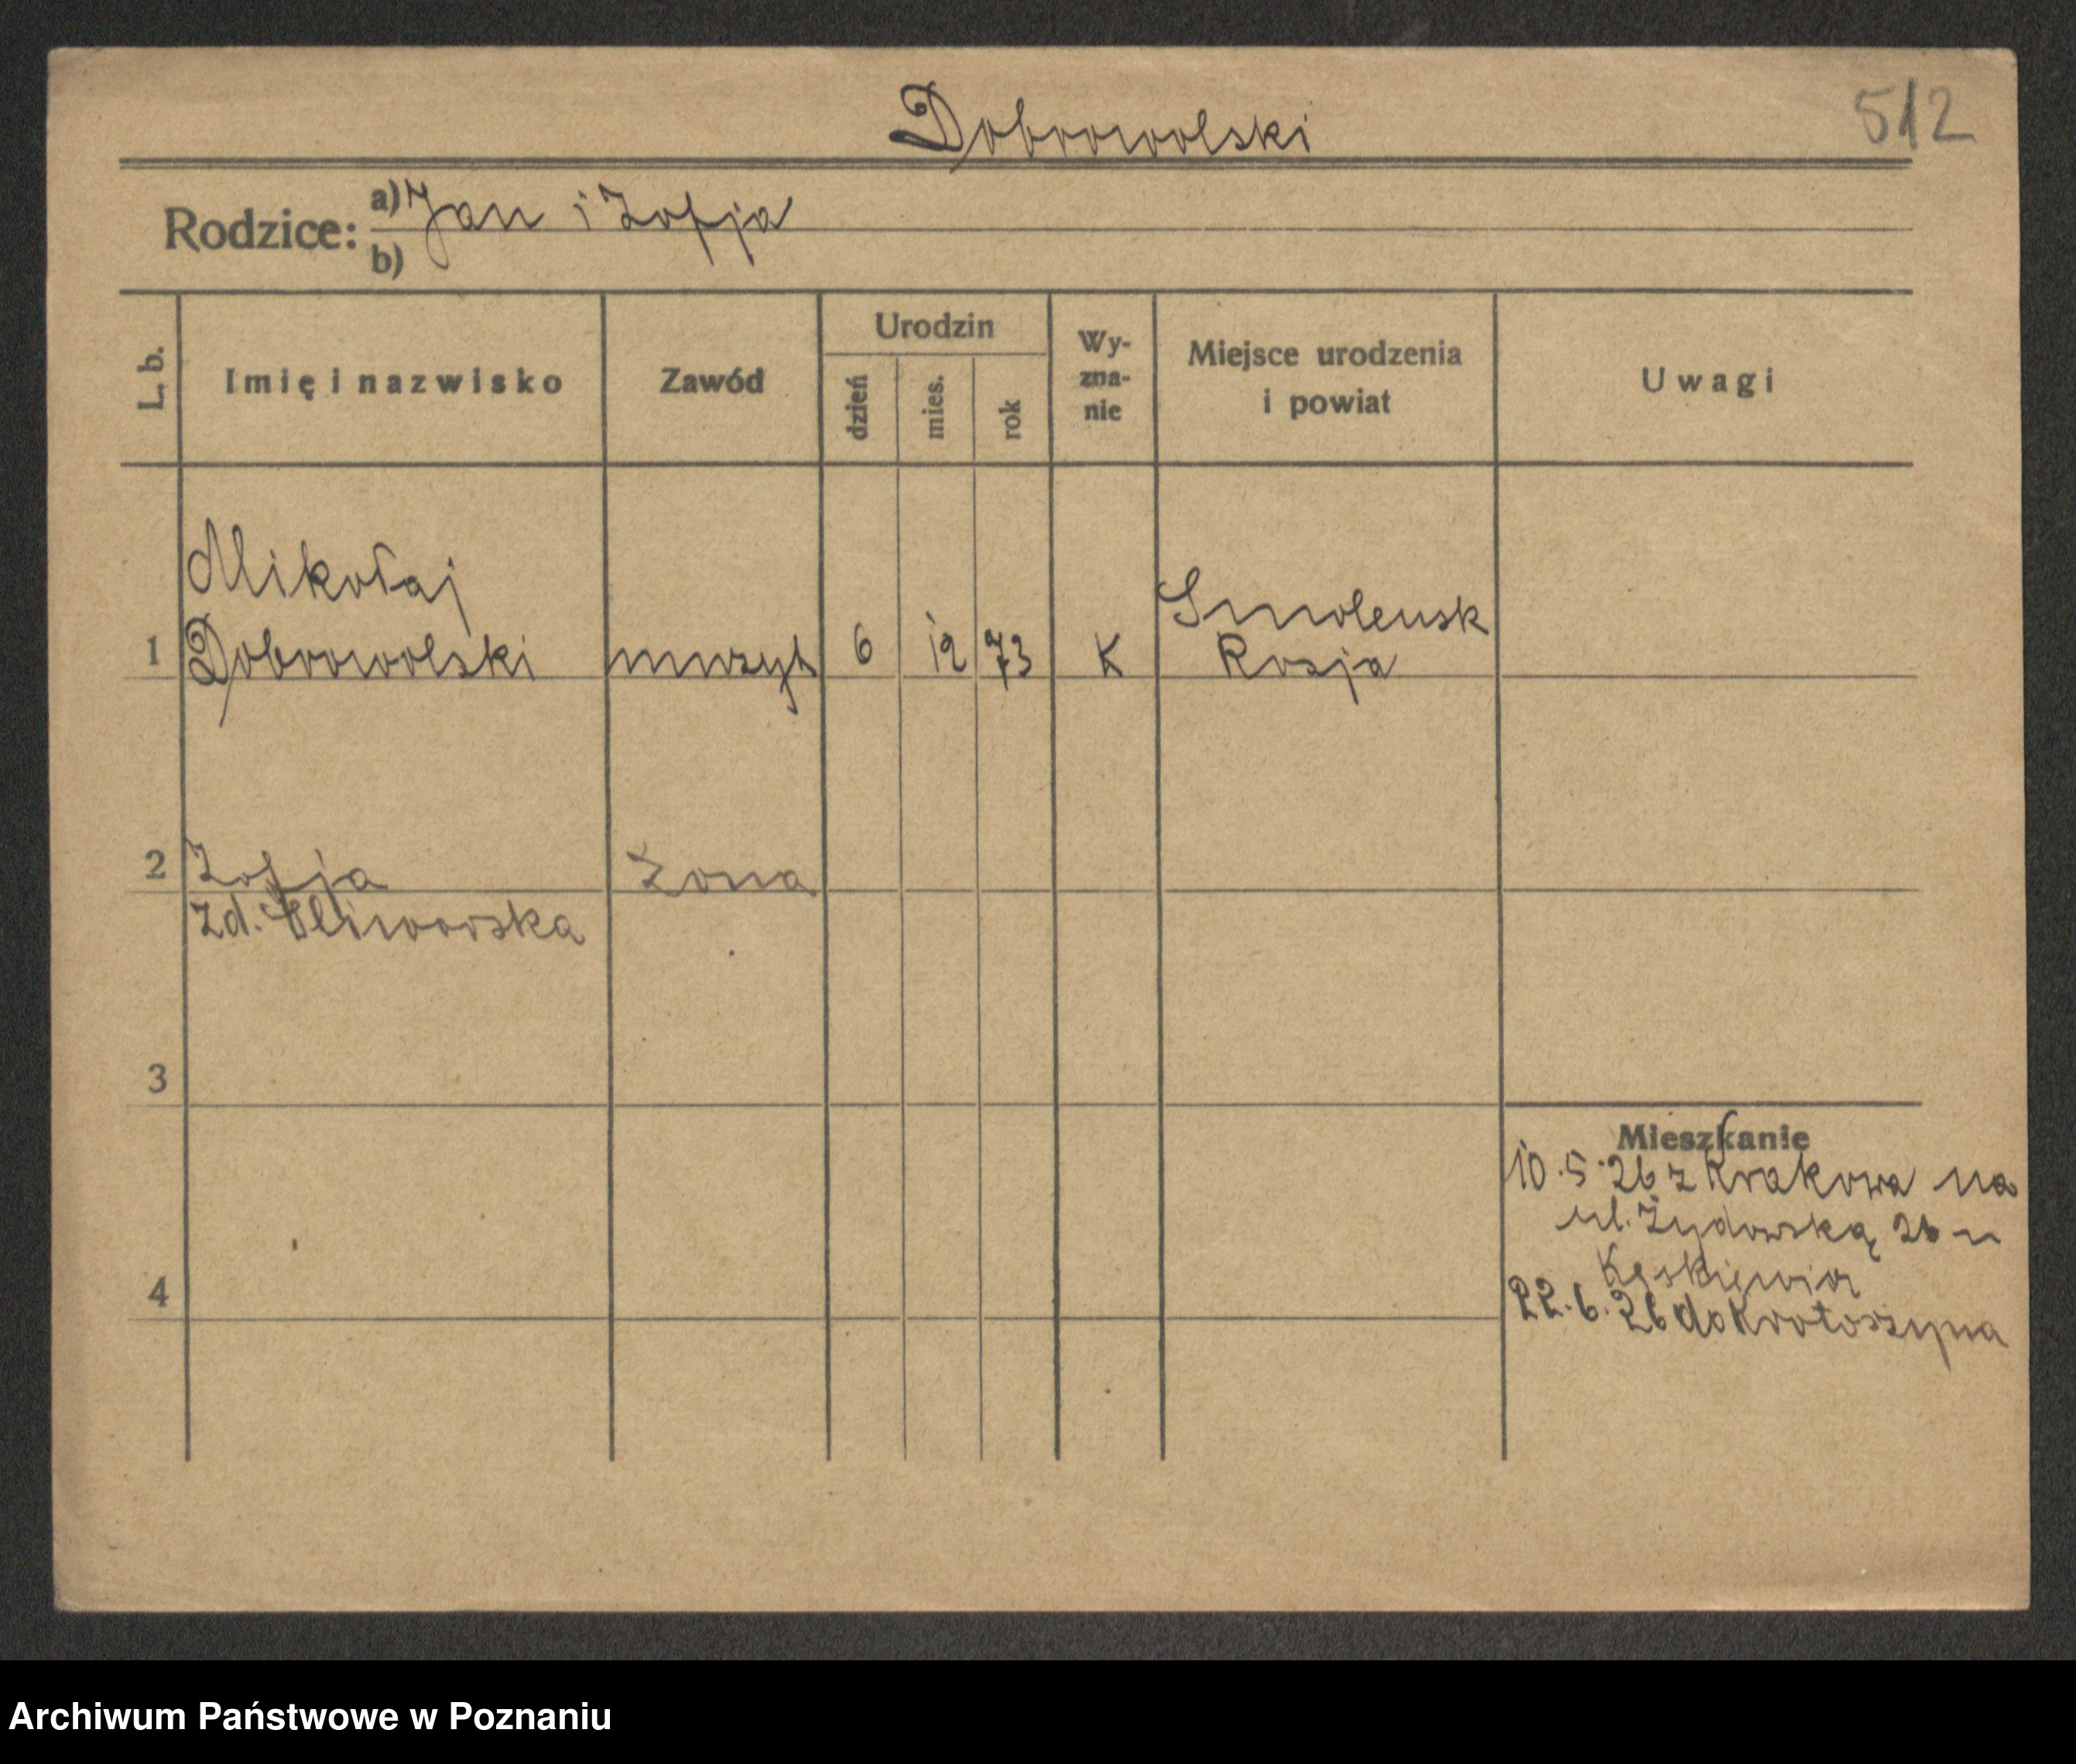 Dobrowolski
512
Rodzice: a) Jan i Zofja
b)
L. b.
Imię i nazwisko
Zawód
Urodzin
dzień
mies.
rok
Wy-
zna-
nie
Miejsce urodzenia
i powiat
Uwagi
Mikołaj
1 Dobrowolski muzyk 6 12 73 K Smolensk
Rosja
2 Zofja Żona
zd.
3
4
Mieszkanie
10.5.26 z Krakowa na
ul. Żydowską 26 u
22.6.26 do Krotoszyna
Archiwum Państwowe w Poznaniu